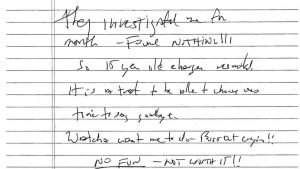 They investigated me for
month - Found NOTHING!!!
So 15 year old charges resulted
It is a treat to be able to choose
time to say goodbye.
Watcha want me to do - Bust out cryin!!
NO FUN - NOT WORTH IT!!